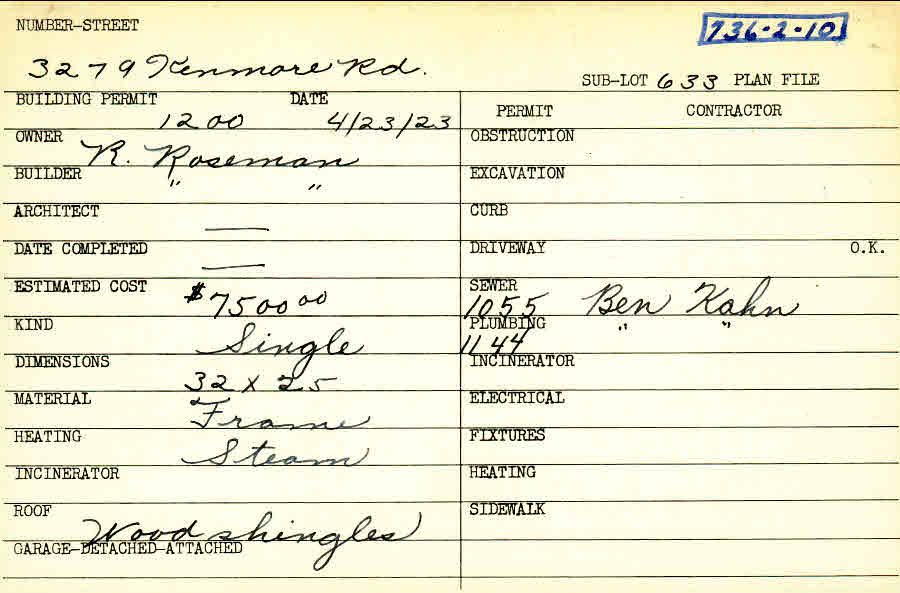 NUMBER-STREET
736-2-10
3279 Kenmore Rd.
SUB-LOT 633 PLAN FILE
BUILDING PERMIT DATE
1200 4/23/23
PERMIT CONTRACTOR
OWNER
R. Roseman
BUILDER
" "
ARCHITECT
—
DATE COMPLETED
—
ESTIMATED COST
$7500 00
KIND
Single
DIMENSIONS
32 x 25
MATERIAL
Frame
HEATING
Steam
INCINERATOR
ROOF
Wood shingles
GARAGE-DETACHED-ATTACHED
OBSTRUCTION
EXCAVATION
CURB
DRIVEWAY O.K.
SEWER
1055 Ben Kahn
PLUMBING
1144 " "
INCINERATOR
ELECTRICAL
FIXTURES
HEATING
SIDEWALK